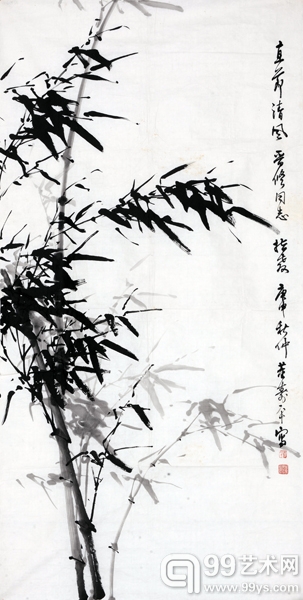 直节清风 晋修同志
指教 庚申秋仲 董寿平写
99艺术网
www.99ys.com